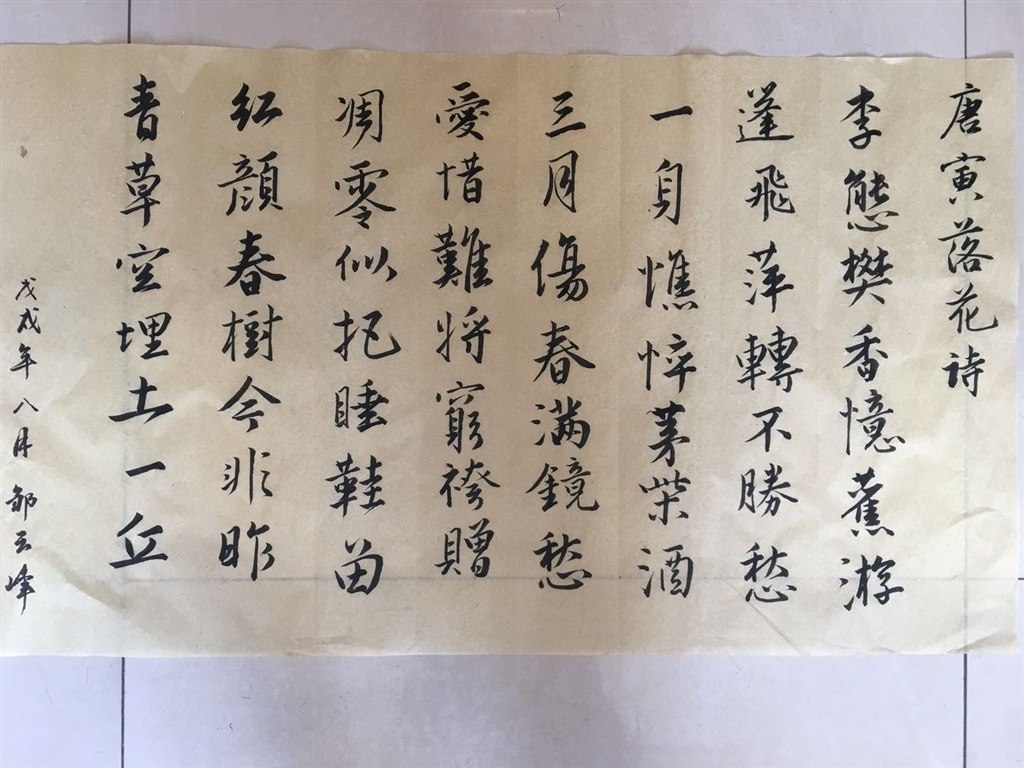 唐寅落花诗
李態樊香憶舊游
蓬飛萍轉不勝愁
一身憔悴茅柴酒
三月傷春满鏡愁
愛惜難将窮袴贈
凋零似把睡鞋留
红顔春樹今非昨
青草空埋土一丘
戊戌年八月云峰